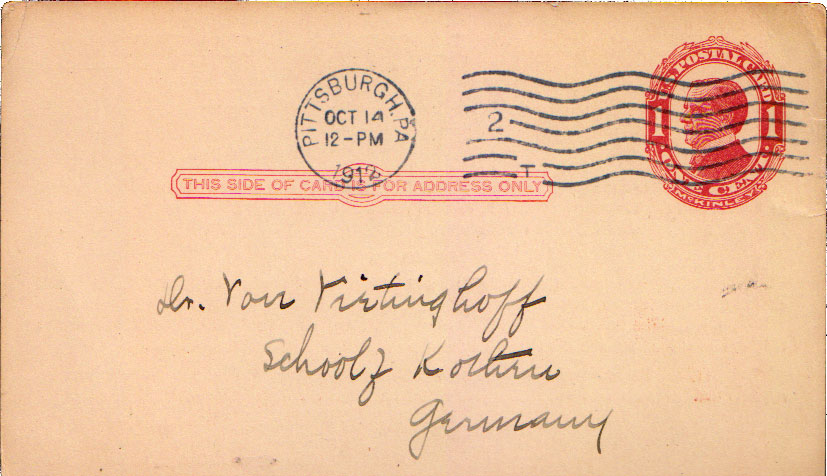 PITTSBURGH, PA
OCT 14
12-PM
191
2
T
U.S. POSTAL CARD
1 1
ONE CENT
McKINLEY
THIS SIDE OF CARD IS FOR ADDRESS ONLY
Dr. Von Virtinghoff
School
Germany